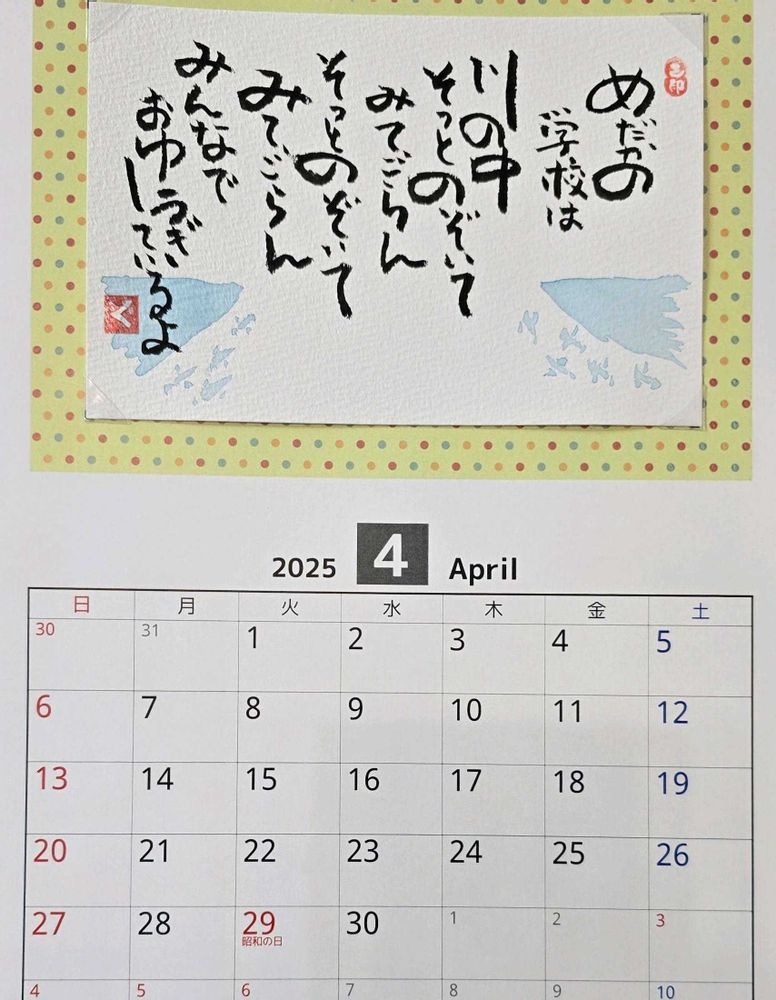 めだかの
学校は
川の中
そっとのぞいて
みてごらん
そっとのぞいて
みてごらん
みんなで
おゆうぎ
しているよ
2025 4 April
日 月 火 水 木 金 土
30 31 1 2 3 4 5
6 7 8 9 10 11 12
13 14 15 16 17 18 19
20 21 22 23 24 25 26
27 28 29 30 1 2 3
昭和の日
4 5 6 7 8 9 10